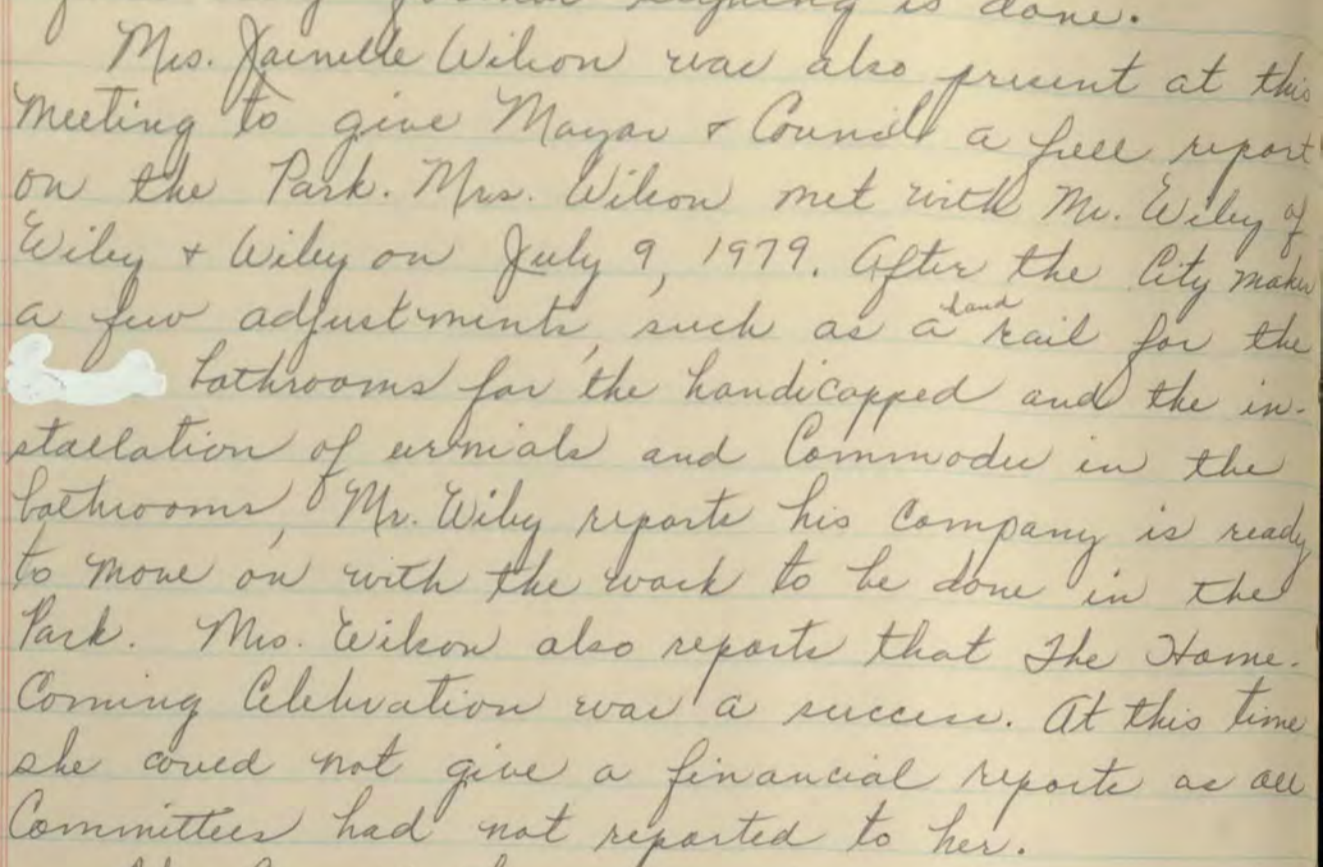 formal signing is done.
Mrs. Jainelle Wilson was also present at this
Meeting to give Mayor & Council a full report
on the Park. Mrs. Wilson met with Mr. Wiley of
Wiley & Wiley on July 9, 1979. After the City makes
a few adjustments, such as a hand rail for the
bathrooms for the handicapped and the in-
stallation of urnials and Commodes in the
bathrooms, Mr. Wiley reports his Company is ready
to move on with the work to be done in the
Park. Mrs. Wilson also reports that The Home-
Coming Celebration was a success. At this time
she could not give a financial reports as all
Committees had not reported to her.